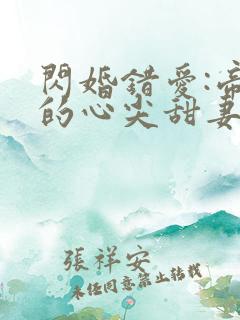 閃婚錯愛:帝
的心尖甜妻
張祥安
未经同意禁止转载